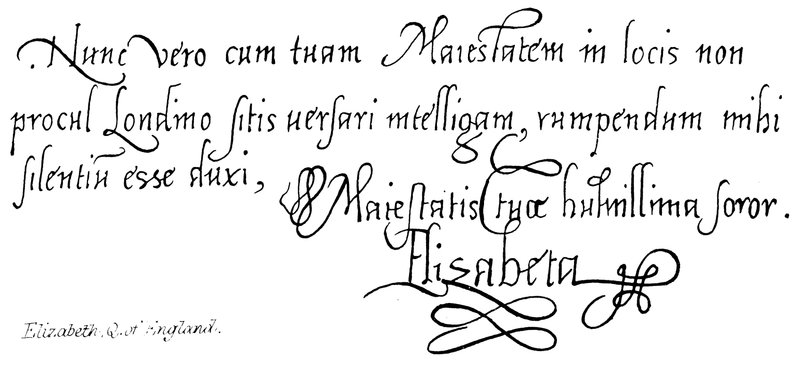 .Nunc vero cum tuam Maiestatem in locis non
procul Londino sitis uersari intelligam, rumpendum mihi
silentiũ esse duxi,
Maiestatis tuæ humillima soror.
Elisabeta
Elizabeth. Q. of England.